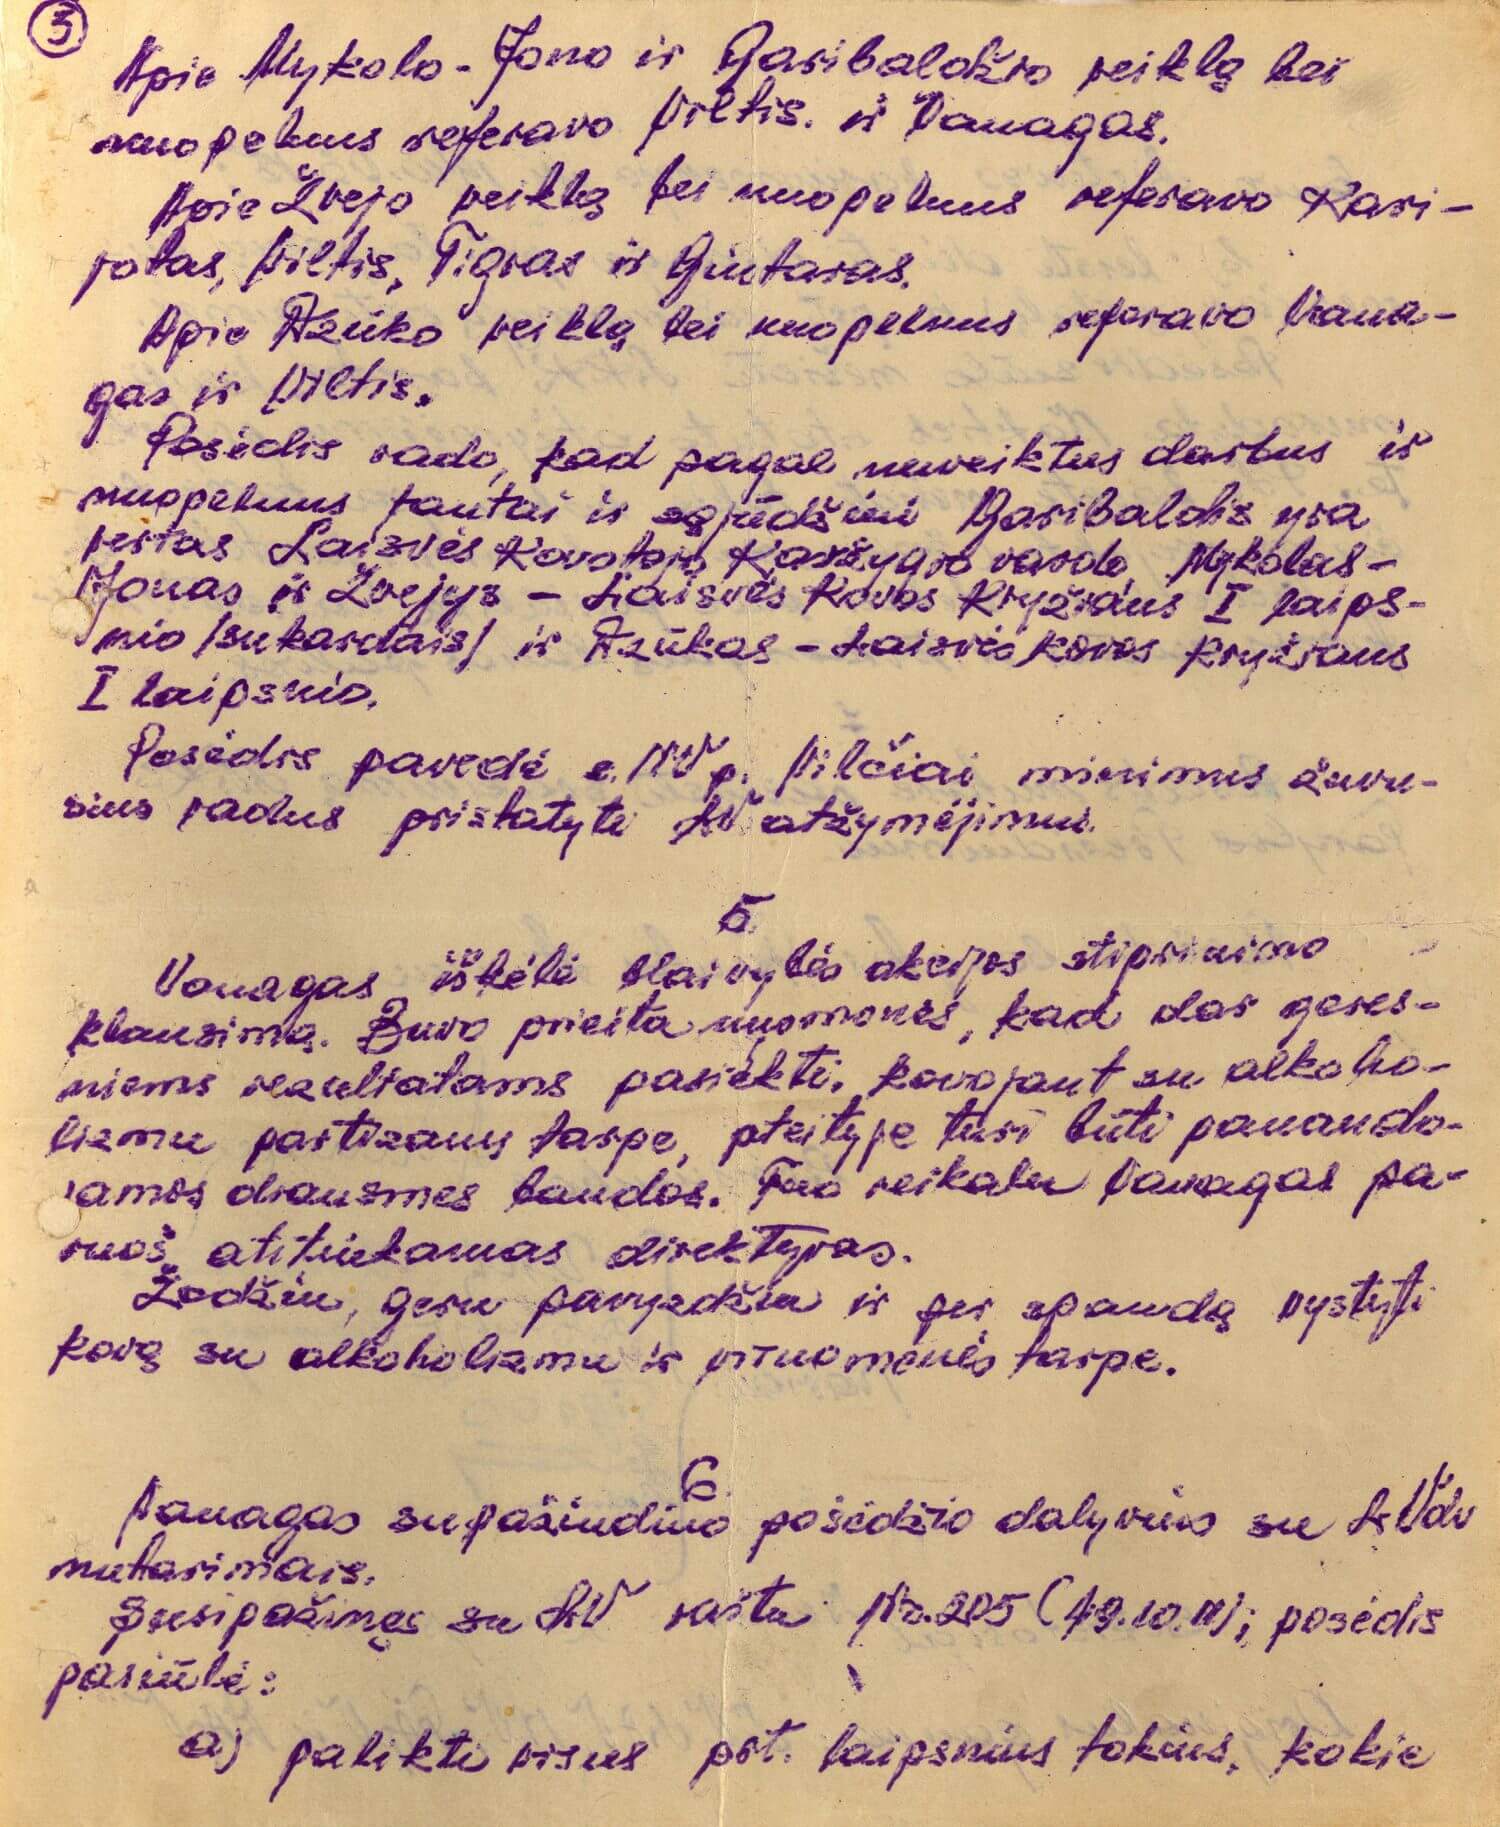 3.
Apie Mykolo-Jono ir Garibaldžio veiklą bei
nuopelnus referavo Viltis. ir Vanagas.
Apie Žvejo veiklą bei nuopelnus referavo Kari-
jotas, Viltis, Tigras ir Gintaras.
Apie Ažūko veiklą bei nuopelnus referavo Vana-
gas ir Viltis.
Posėdis rado, kad pagal nuveiktus darbus ir
nuopelnus tautai ir sąjūdžiui Garibaldis yra
vertas Laisvės Kovotojo Karžygio vardo Mykolas-
Jonas ir Žvejys - Laisvės Kovos Kryžiaus I laips-
nio /su kardais/ ir Ažūkas - Laisvės Kovos Kryžiaus
I laipsnio.
Posėdis pavedė p. Vilčiai minimus žuvu-
sius vadus pristatyti atžymėjimui.
5.
Vanagas iškėlė blaivybės akcijos stiprinimo
klausimą. Buvo prieita nuomonės, kad dar geres-
niems rezultatams pasiekti, kovojant su alkoho-
lizmu partizanų tarpe, ateityje turi būti panaudo-
jamos drausmės baudos. Tuo reikalu Vanagas pa-
ruoš atitinkamas direktyvas.
Žodžiu, geru pavyzdžiu ir per spaudą vystyti
kovą su alkoholizmu ir visuomenės tarpe.
6.
Vanagas supažindino posėdžio dalyvius su
nutarimais.
Susipažinęs su raštu Nr. 205 (49.10.11); posėdis
pasiūlė:
a) palikti visus prt. laipsnius tokius, kokie